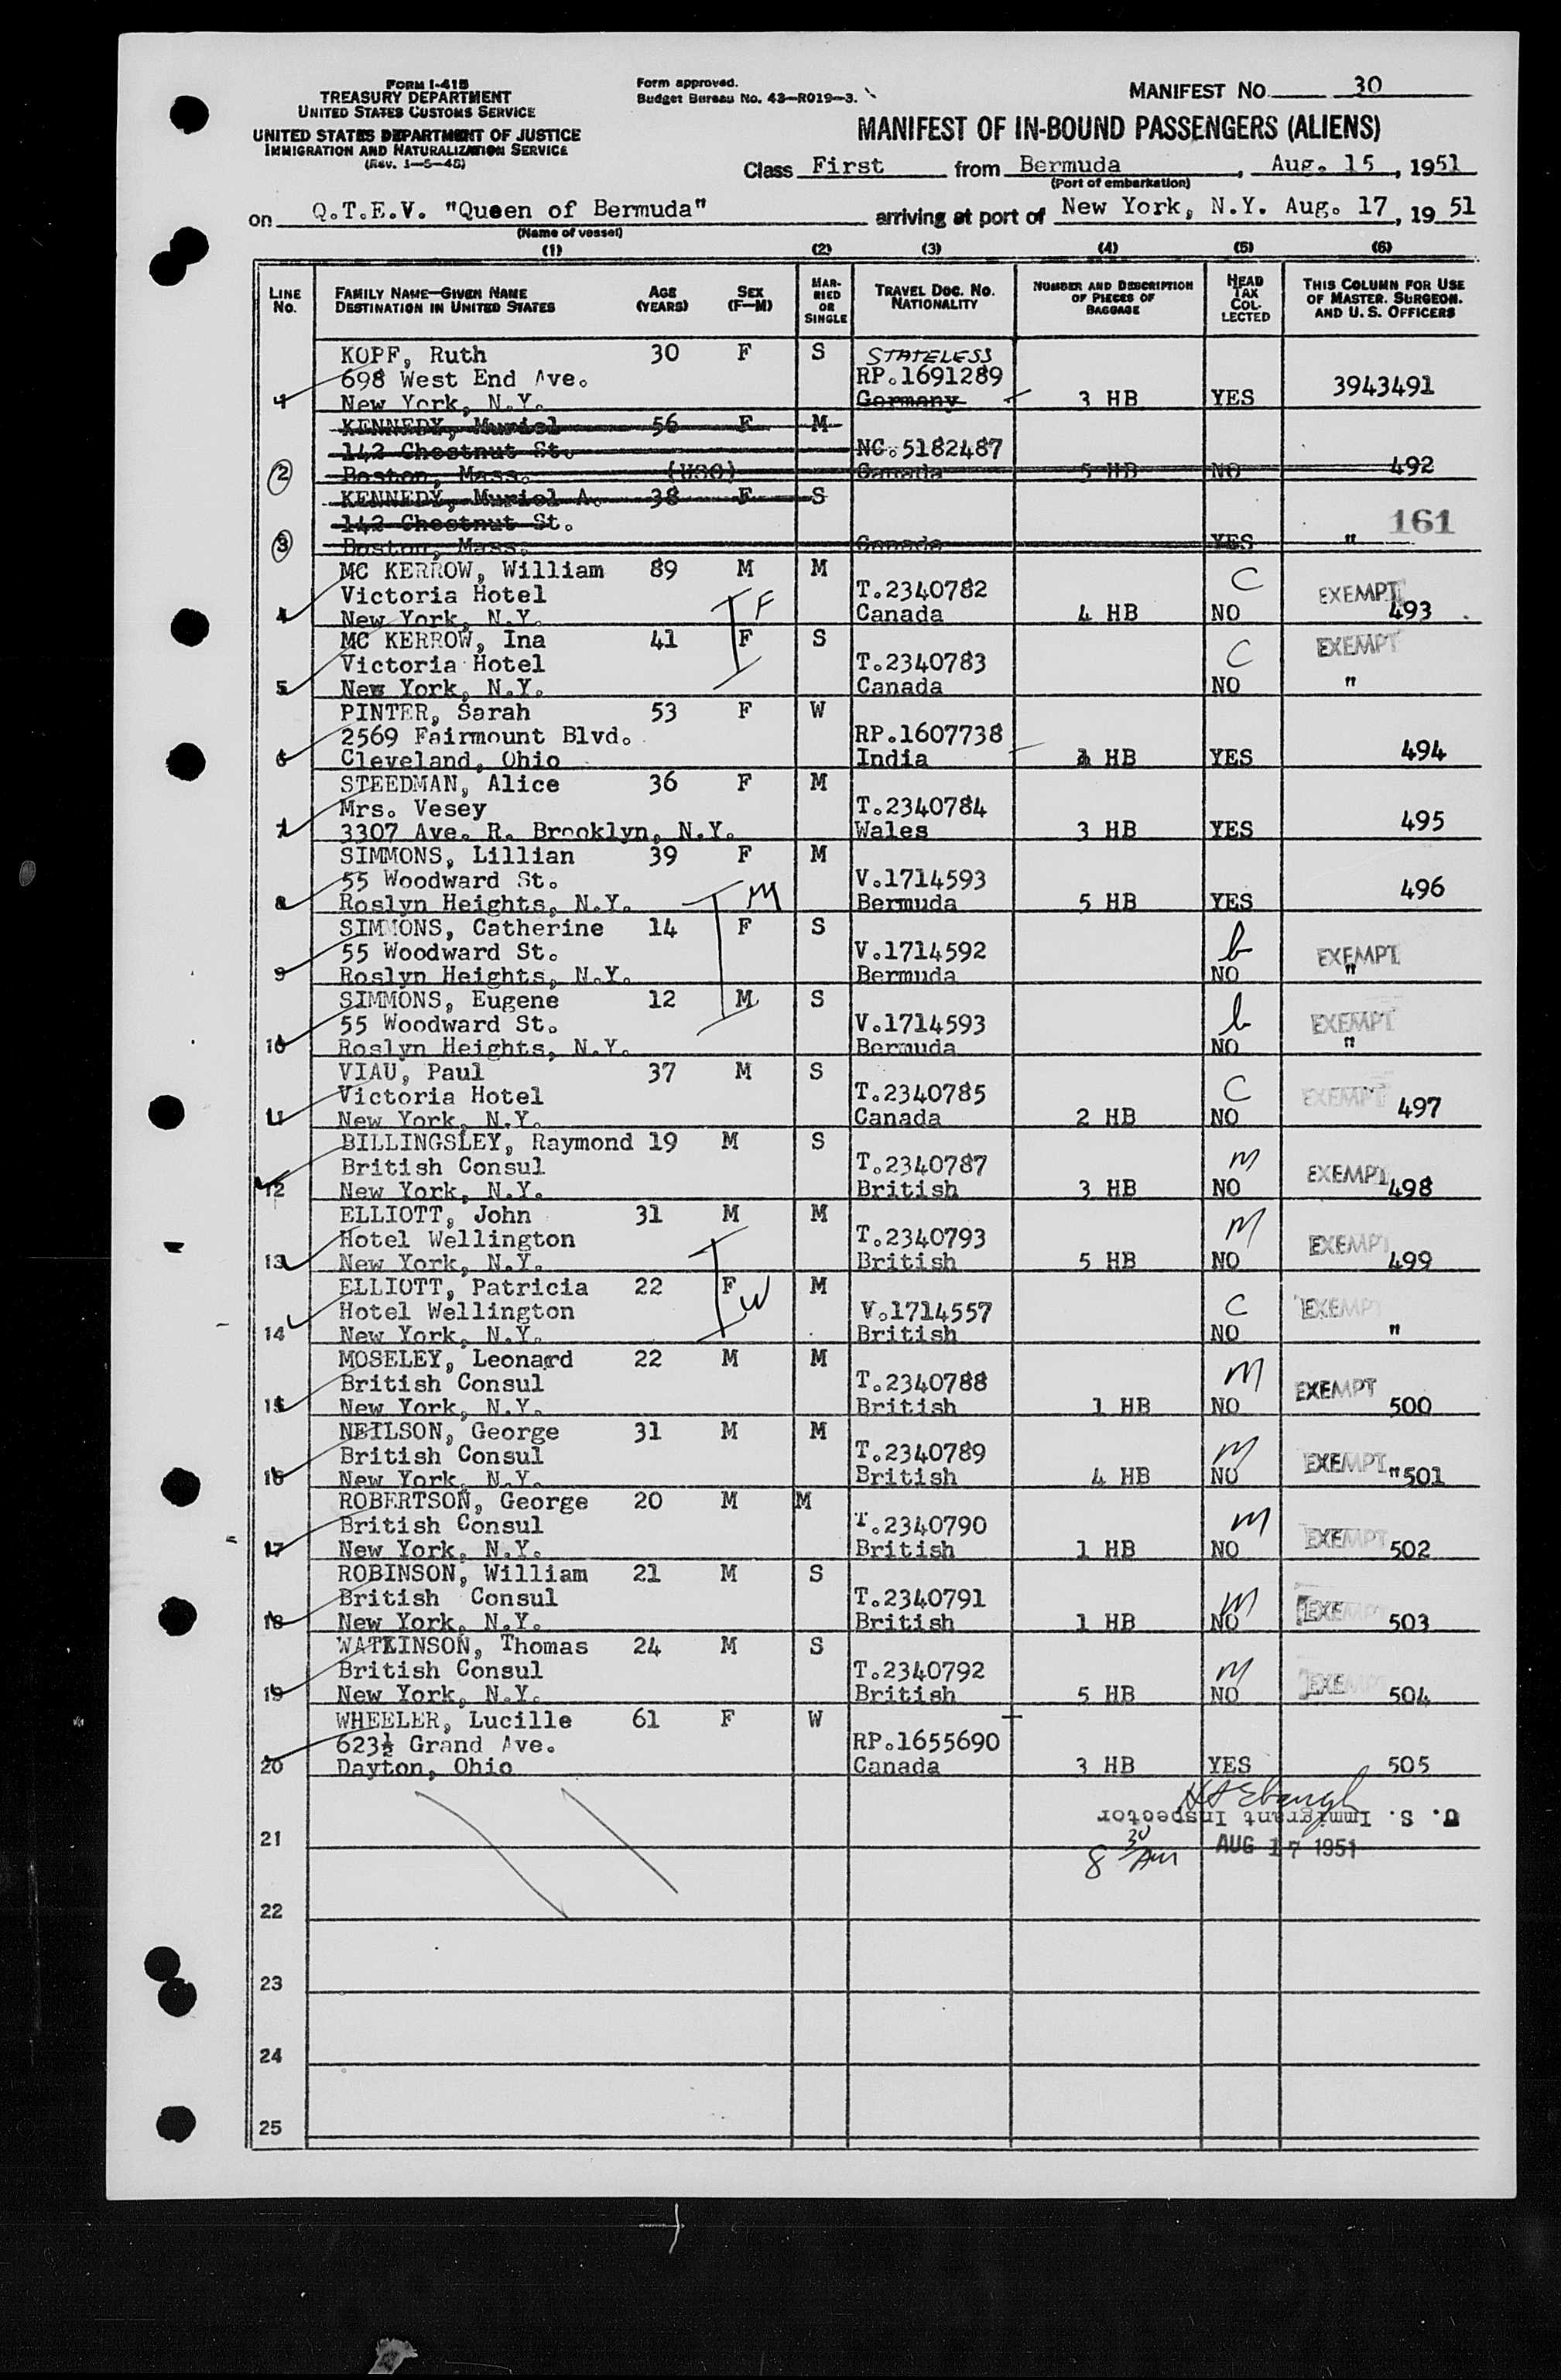 FORM I-415
TREASURY DEPARTMENT
UNITED STATES CUSTOMS SERVICE
UNITED STATES DEPARTMENT OF JUSTICE
IMMIGRATION AND NATURALIZATION SERVICE
(Rev. 1-5-48)
Form approved.
Budget Bureau No. 43-R019-3.
MANIFEST NO. 30
MANIFEST OF IN-BOUND PASSENGERS (ALIENS)
Class First from Bermuda, Aug. 15, 1951
(Port of embarkation)
on Q.T.E.V. "Queen of Bermuda" arriving at port of New York, N.Y. Aug. 17, 1951
(Name of vessel)
(1) (2) (3) (4) (5) (6)
LINE No. FAMILY NAME—GIVEN NAME DESTINATION IN UNITED STATES AGE (YEARS) SEX (F—M) MARRIED OR SINGLE TRAVEL DOC. NO. NATIONALITY NUMBER AND DESCRIPTION OF PIECES OF BAGGAGE HEAD TAX COLLECTED THIS COLUMN FOR USE OF MASTER, SURGEON, AND U. S. OFFICERS
KOPF, Ruth 30 F S STATELESS
698 West End Ave. RP.1691289 3943491
1 New York, N.Y. Germany 3 HB YES
KENNEDY, Muriel 56 F M
142 Chestnut St. NC.5182487
2 Boston, Mass. (USO) Canada 5 HB NO 492
KENNEDY, Muriel A. 38 F S
142 Chestnut St. 161
3 Boston, Mass. Canada YES "
MC KERROW, William 89 M M C
Victoria Hotel F T.2340782 EXEMPT
4 New York, N.Y. Canada 4 HB NO 493
MC KERROW, Ina 41 F S C EXEMPT
Victoria Hotel T.2340783
5 New York, N.Y. Canada NO "
PINTER, Sarah 53 F W
2569 Fairmount Blvd. RP.1607738
6 Cleveland, Ohio India HB YES 494
STEEDMAN, Alice 36 F M
Mrs. Vesey T.2340784
7 3307 Ave. R. Brooklyn, N.Y. Wales 3 HB YES 495
SIMMONS, Lillian 39 F M
55 Woodward St. M V.1714593
8 Roslyn Heights, N.Y. Bermuda 5 HB YES 496
SIMMONS, Catherine 14 F S b
55 Woodward St. V.1714592 EXEMPT
9 Roslyn Heights, N.Y. Bermuda NO "
SIMMONS, Eugene 12 M S b
55 Woodward St. V.1714593 EXEMPT
10 Roslyn Heights, N.Y. Bermuda NO "
VIAU, Paul 37 M S C
Victoria Hotel T.2340785 EXEMPT
11 New York, N.Y. Canada 2 HB NO 497
BILLINGSLEY, Raymond 19 M S m
British Consul T.2340787 EXEMPT
12 New York, N.Y. British 3 HB NO 498
ELLIOTT, John 31 M M m
Hotel Wellington T.2340793 EXEMPT
13 New York, N.Y. British 5 HB NO 499
ELLIOTT, Patricia 22 F M C
Hotel Wellington W V.1714557 EXEMPT
14 New York, N.Y. British NO "
MOSELEY, Leonard 22 M M m
British Consul T.2340788 EXEMPT
15 New York, N.Y. British 1 HB NO 500
NEILSON, George 31 M M m
British Consul T.2340789 EXEMPT
16 New York, N.Y. British 4 HB NO "501
ROBERTSON, George 20 M M m
British Consul T.2340790 EXEMPT
17 New York, N.Y. British 1 HB NO 502
ROBINSON, William 21 M S m
British Consul T.2340791 EXEMPT
18 New York, N.Y. British 1 HB NO 503
WATKINSON, Thomas 24 M S m
British Consul T.2340792 EXEMPT
19 New York, N.Y. British 5 HB NO 504
WHEELER, Lucille 61 F W
623½ Grand Ave. RP.1655690
20 Dayton, Ohio Canada 3 HB YES 505
U. S. Immigrant Inspector
21 8 30 AM AUG 17 1951
22
23
24
25